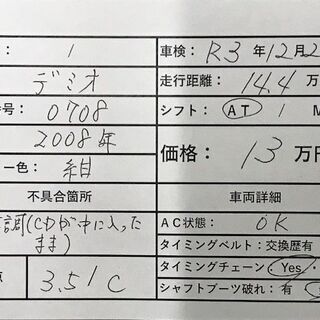 : 1
車検: R3 年 12 月 2
デミオ
走行距離: 14.4 万
番号: 0708
シフト: AT / M
2008年
価格: 13 万円
ー色: 紺
不具合箇所
車両詳細
調(CDが中に入った
まま)
AC状態: OK
タイミングベルト: 交換歴有
点 3.5/C
タイミングチェーン: Yes
シャフトブーツ破れ: 有